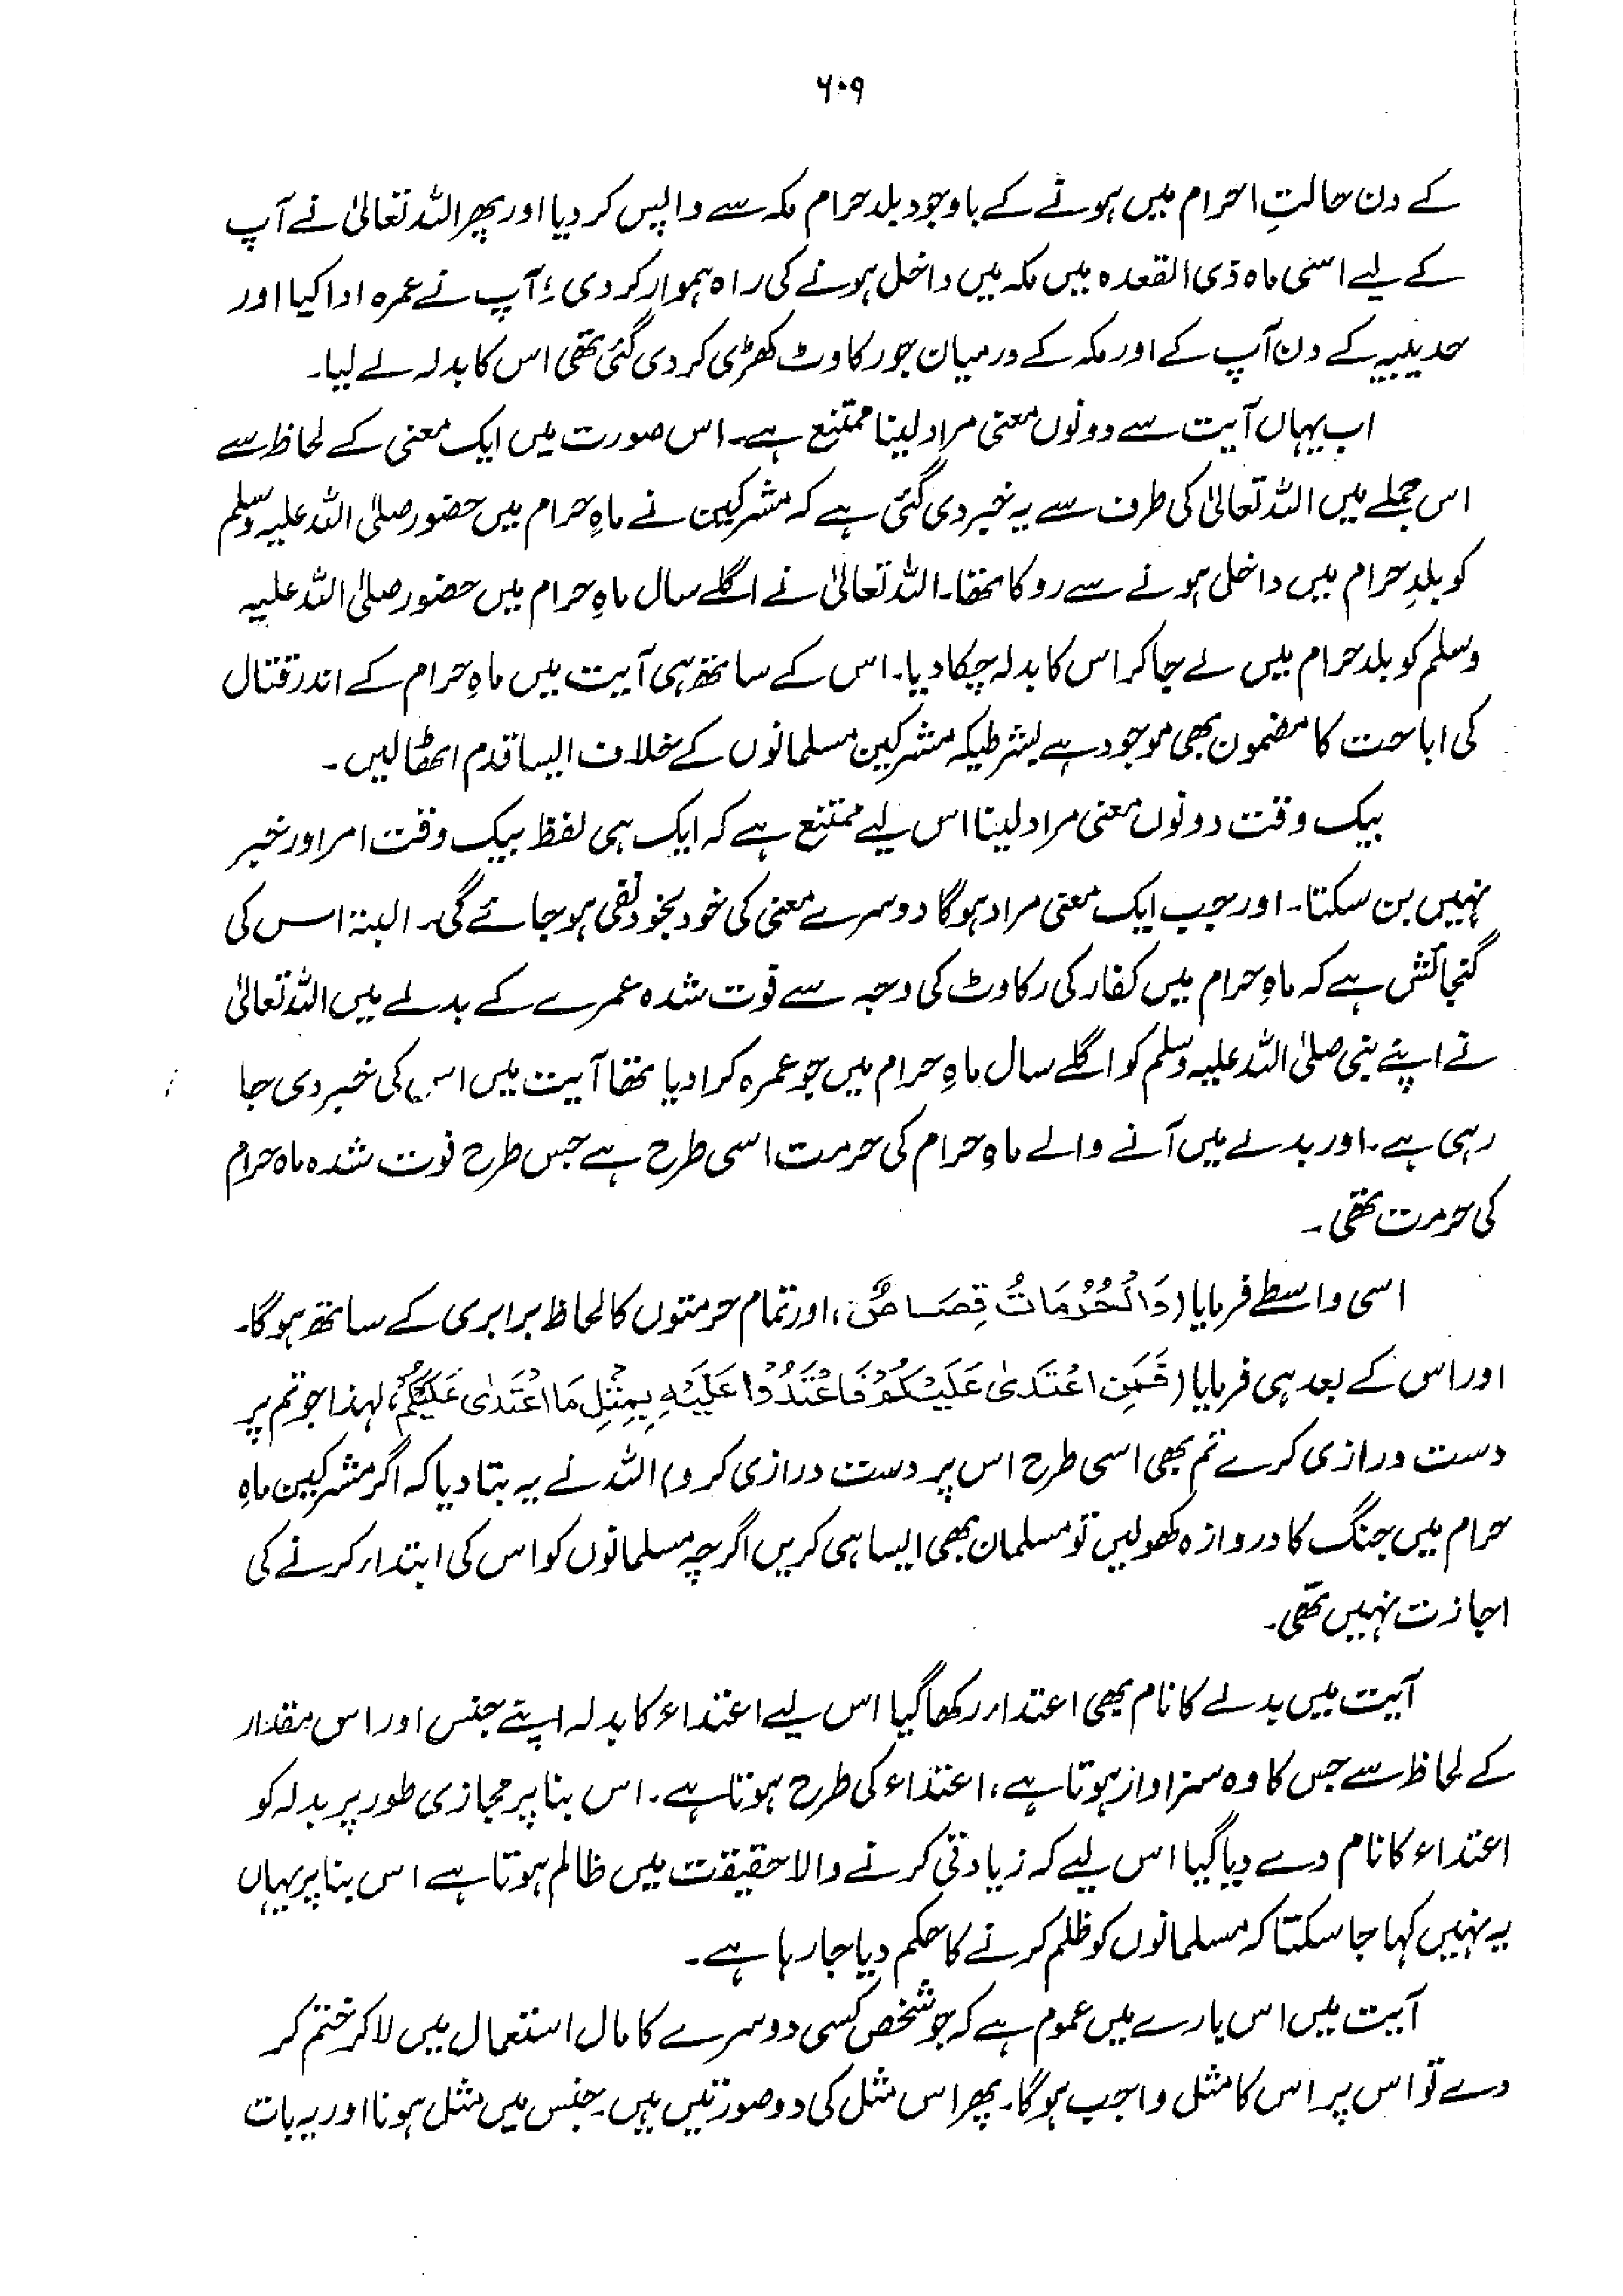 ۶۰۹
کے دن حالتِ احرام میں ہونے کے باوجود بلد حرام مکہ سے واپس کر دیا اور پھر اللہ تعالیٰ نے آپ
کے لیے اسی ماہ ذی القعدہ میں مکہ میں داخل ہونے کی راہ ہموار کر دی ؛ آپ نے عمرہ ادا کیا اور
حدیبیہ کے دن آپ کے اور مکہ کے درمیان جو رکاوٹ کھڑی کر دی گئی تھی اس کا بدلہ لے لیا۔
اب یہاں آیت سے دونوں معنی مراد لینا ممتنع ہے۔ اس صورت میں ایک معنی کے لحاظ سے
اس جملے میں اللہ تعالیٰ کی طرف سے یہ خبر دی گئی ہے کہ مشرکین نے ماہِ حرام میں حضور صلی اللہ علیہ وسلم
کو بلدِ حرام میں داخل ہونے سے روکا تھا۔ اللہ تعالیٰ نے اگلے سال ماہِ حرام میں حضور صلی اللہ علیہ
وسلم کو بلد حرام میں لے جا کر اس کا بدلہ چکا دیا۔ اس کے ساتھ ہی آیت میں ماہِ حرام کے اندر قتال
کی اباحت کا مضمون بھی موجود ہے بشرطیکہ مشرکین مسلمانوں کے خلاف ایسا قدم اٹھا لیں۔
بیک وقت دونوں معنی مراد لینا اس لیے ممتنع ہے کہ ایک ہی لفظ بیک وقت امر اور خبر
نہیں بن سکتا۔ اور جب ایک معنی مراد ہوگا دوسرے معنی کی خود بخود نفی ہو جائے گی۔ البتہ اس کی
گنجائش ہے کہ ماہِ حرام میں کفار کی رکاوٹ کی وجہ سے فوت شدہ عمرے کے بدلے میں اللہ تعالیٰ
نے اپنے نبی صلی اللہ علیہ وسلم کو اگلے سال ماہِ حرام میں جو عمرہ کرا دیا تھا آیت میں اس کی خبر دی جا
رہی ہے۔ اور بدلے میں آنے والے ماہِ حرام کی حرمت اسی طرح ہے جس طرح فوت شدہ ماہ حرام
کی حرمت تھی۔
اسی واسطے فرمایا (وَالْحُرُمَاتُ قِصَاصٌ، اور تمام حرمتوں کا لحاظ برابری کے ساتھ ہوگا۔
اور اس کے بعد ہی فرمایا (فَمَنِ اعْتَدَىٰ عَلَيْكُمْ فَاعْتَدُوا عَلَيْهِ بِمِثْلِ مَا اعْتَدَىٰ عَلَيْكُمْ، لہذا جو تم پر
دست درازی کرے تم بھی اسی طرح اس پر دست درازی کرو) اللہ نے یہ بتا دیا کہ اگر مشرکین ماہِ
حرام میں جنگ کا دروازہ کھولیں تو مسلمان بھی ایسا ہی کریں اگرچہ مسلمانوں کو اس کی ابتداء کرنے کی
اجازت نہیں تھی۔
آیت میں بدلے کا نام بھی اعتداء رکھا گیا اس لیے اعتداء کا بدلہ اپنے جنس اور اس مقدار
کے لحاظ سے جس کا وہ سزاوار ہوتا ہے، اعتداء کی طرح ہوتا ہے۔ اس بنا پر مجازی طور پر بدلہ کو
اعتداء کا نام دے دیا گیا اس لیے کہ زیادتی کرنے والا حقیقت میں ظالم ہوتا ہے اس بنا پر یہاں
یہ نہیں کہا جا سکتا کہ مسلمانوں کو ظلم کرنے کا حکم دیا جا رہا ہے۔
آیت میں اس بارے میں عموم ہے کہ جو شخص کسی دوسرے کا مال استعمال میں لا کر ختم کر
دے تو اس پر اس کا مثل واجب ہوگا۔ پھر اس مثل کی دو صورتیں ہیں۔ جنس میں مثل ہونا اور یہ بات